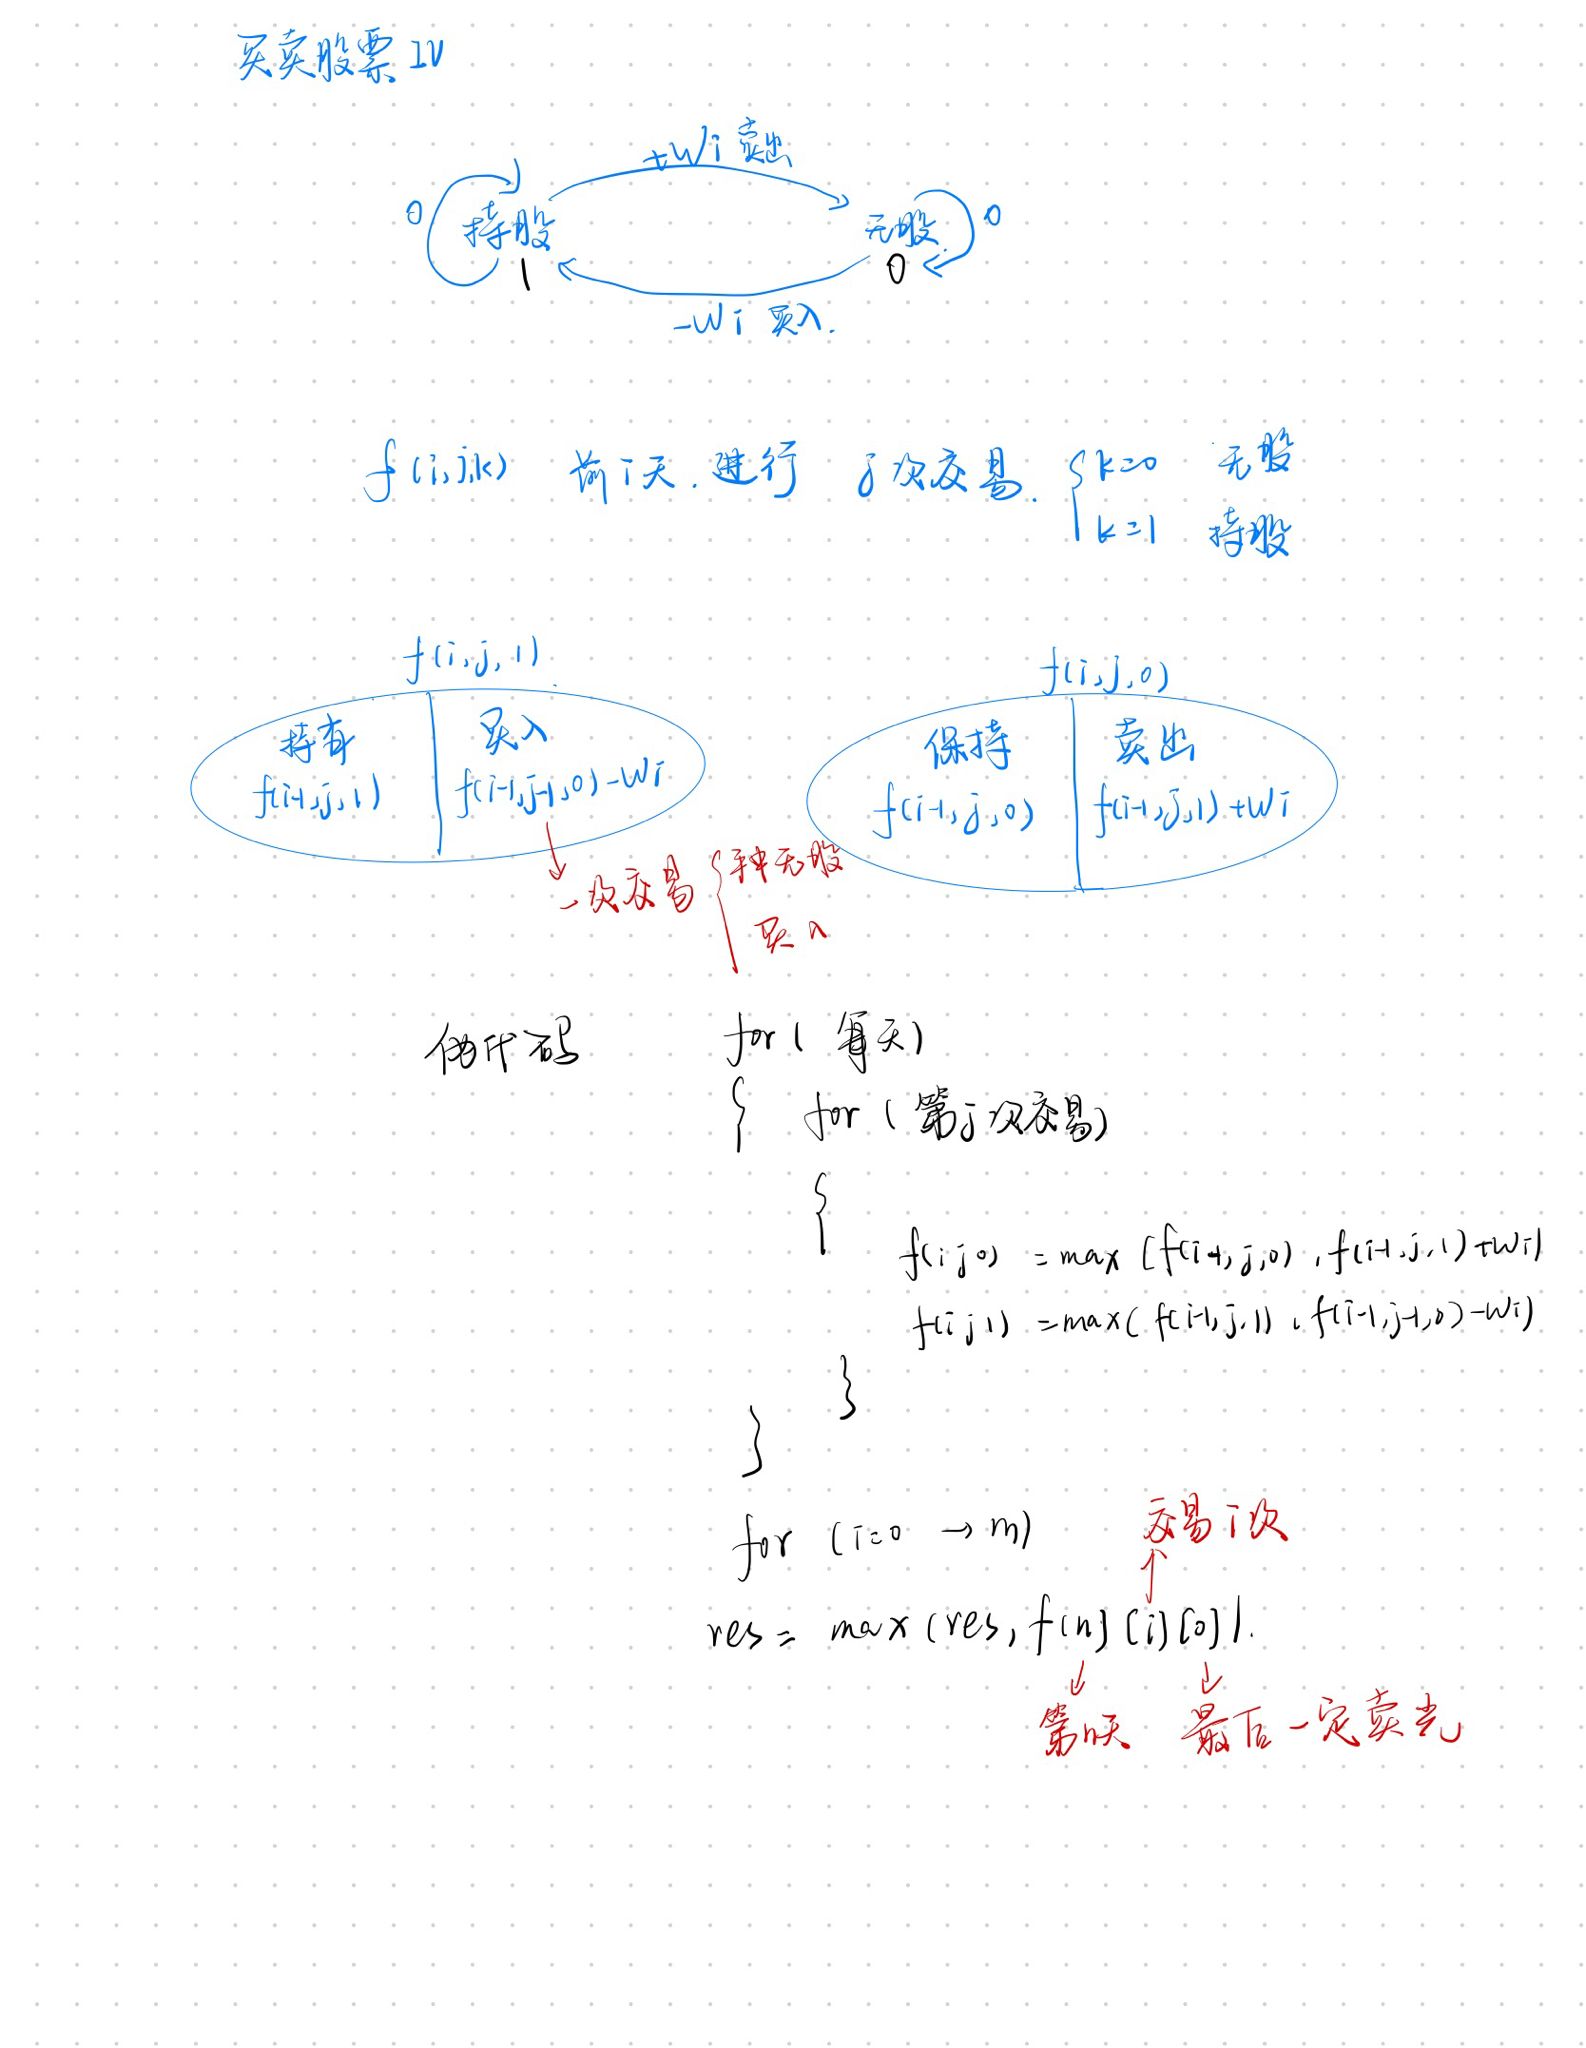 买卖股票 IV
+Wi 卖出
0 持股 无股 0
1 0
-Wi 买入.
f(i,j,k) 前i天.进行 j次交易. { k=0 无股
k=1 持股
f(i,j,1) f(i,j,0)
持有 买入 保持 卖出
f(i-1,j,1) f(i-1,j-1,0)-Wi f(i-1,j,0) f(i-1,j,1)+Wi
一次交易 { 手中无股
买入
伪代码 for( 每天)
{ for(第j次交易)
{
f(i j 0) =max (f(i-1,j,0),f(i-1,j,1)+Wi)
f(i j 1) =max( f(i-1,j,1),f(i-1,j-1,0)-Wi)
}
}
for (i=0 → m) 交易i次
res= max(res,f[n][i][0]).
第n天 最后一定卖光